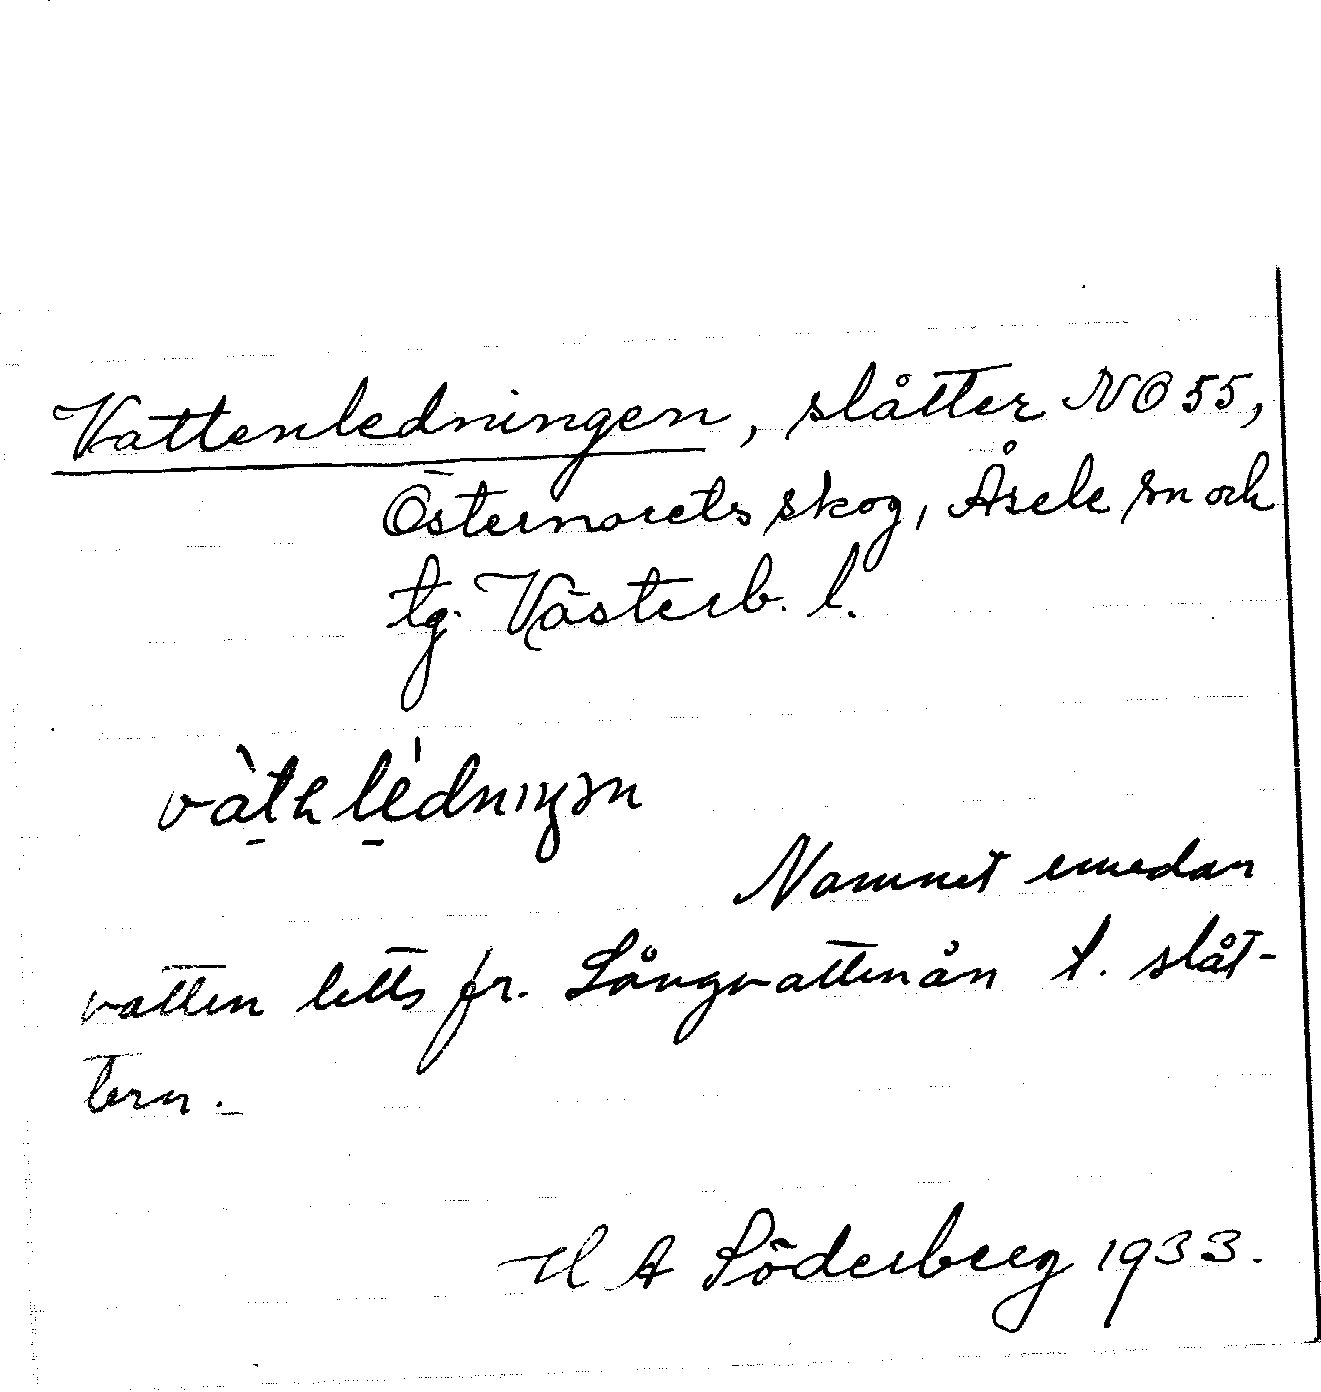 Vattenledningen, slåtter NO 55,
Östernorets skog, Åsele sn och
tg. Västerb. l.
Namnet emedan
vatten letts fr. Långvattenån t. slåt-
tern. –
H A Söderberg 1933.